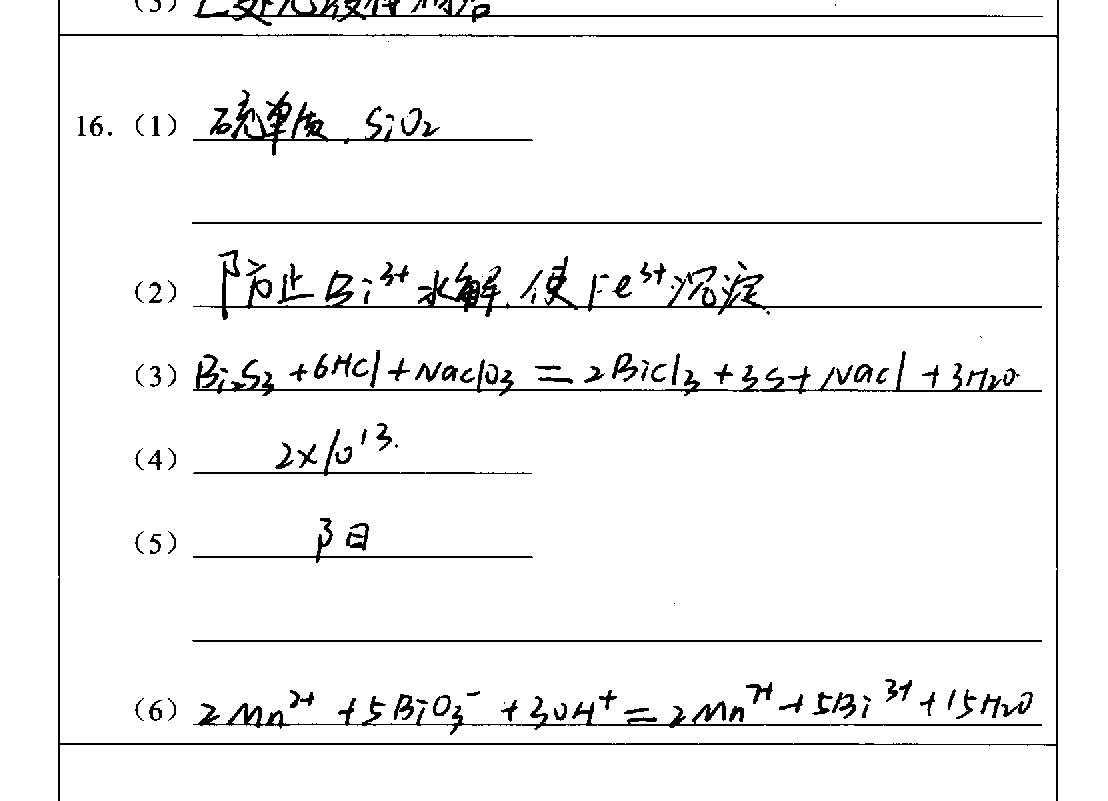 16. (1) 硫单质、SiO₂
(2) 防止Bi³⁺水解,使Fe³⁺沉淀.
(3) Bi₂S₃ + 6HCl + NaClO₃ = 2BiCl₃ + 3S + NaCl + 3H₂O
(4) 2×10¹³.
(5) 阳
(6) 2Mn²⁺ + 5BiO₃⁻ + 30H⁺ = 2Mn⁷⁺ + 5Bi³⁺ + 15H₂O